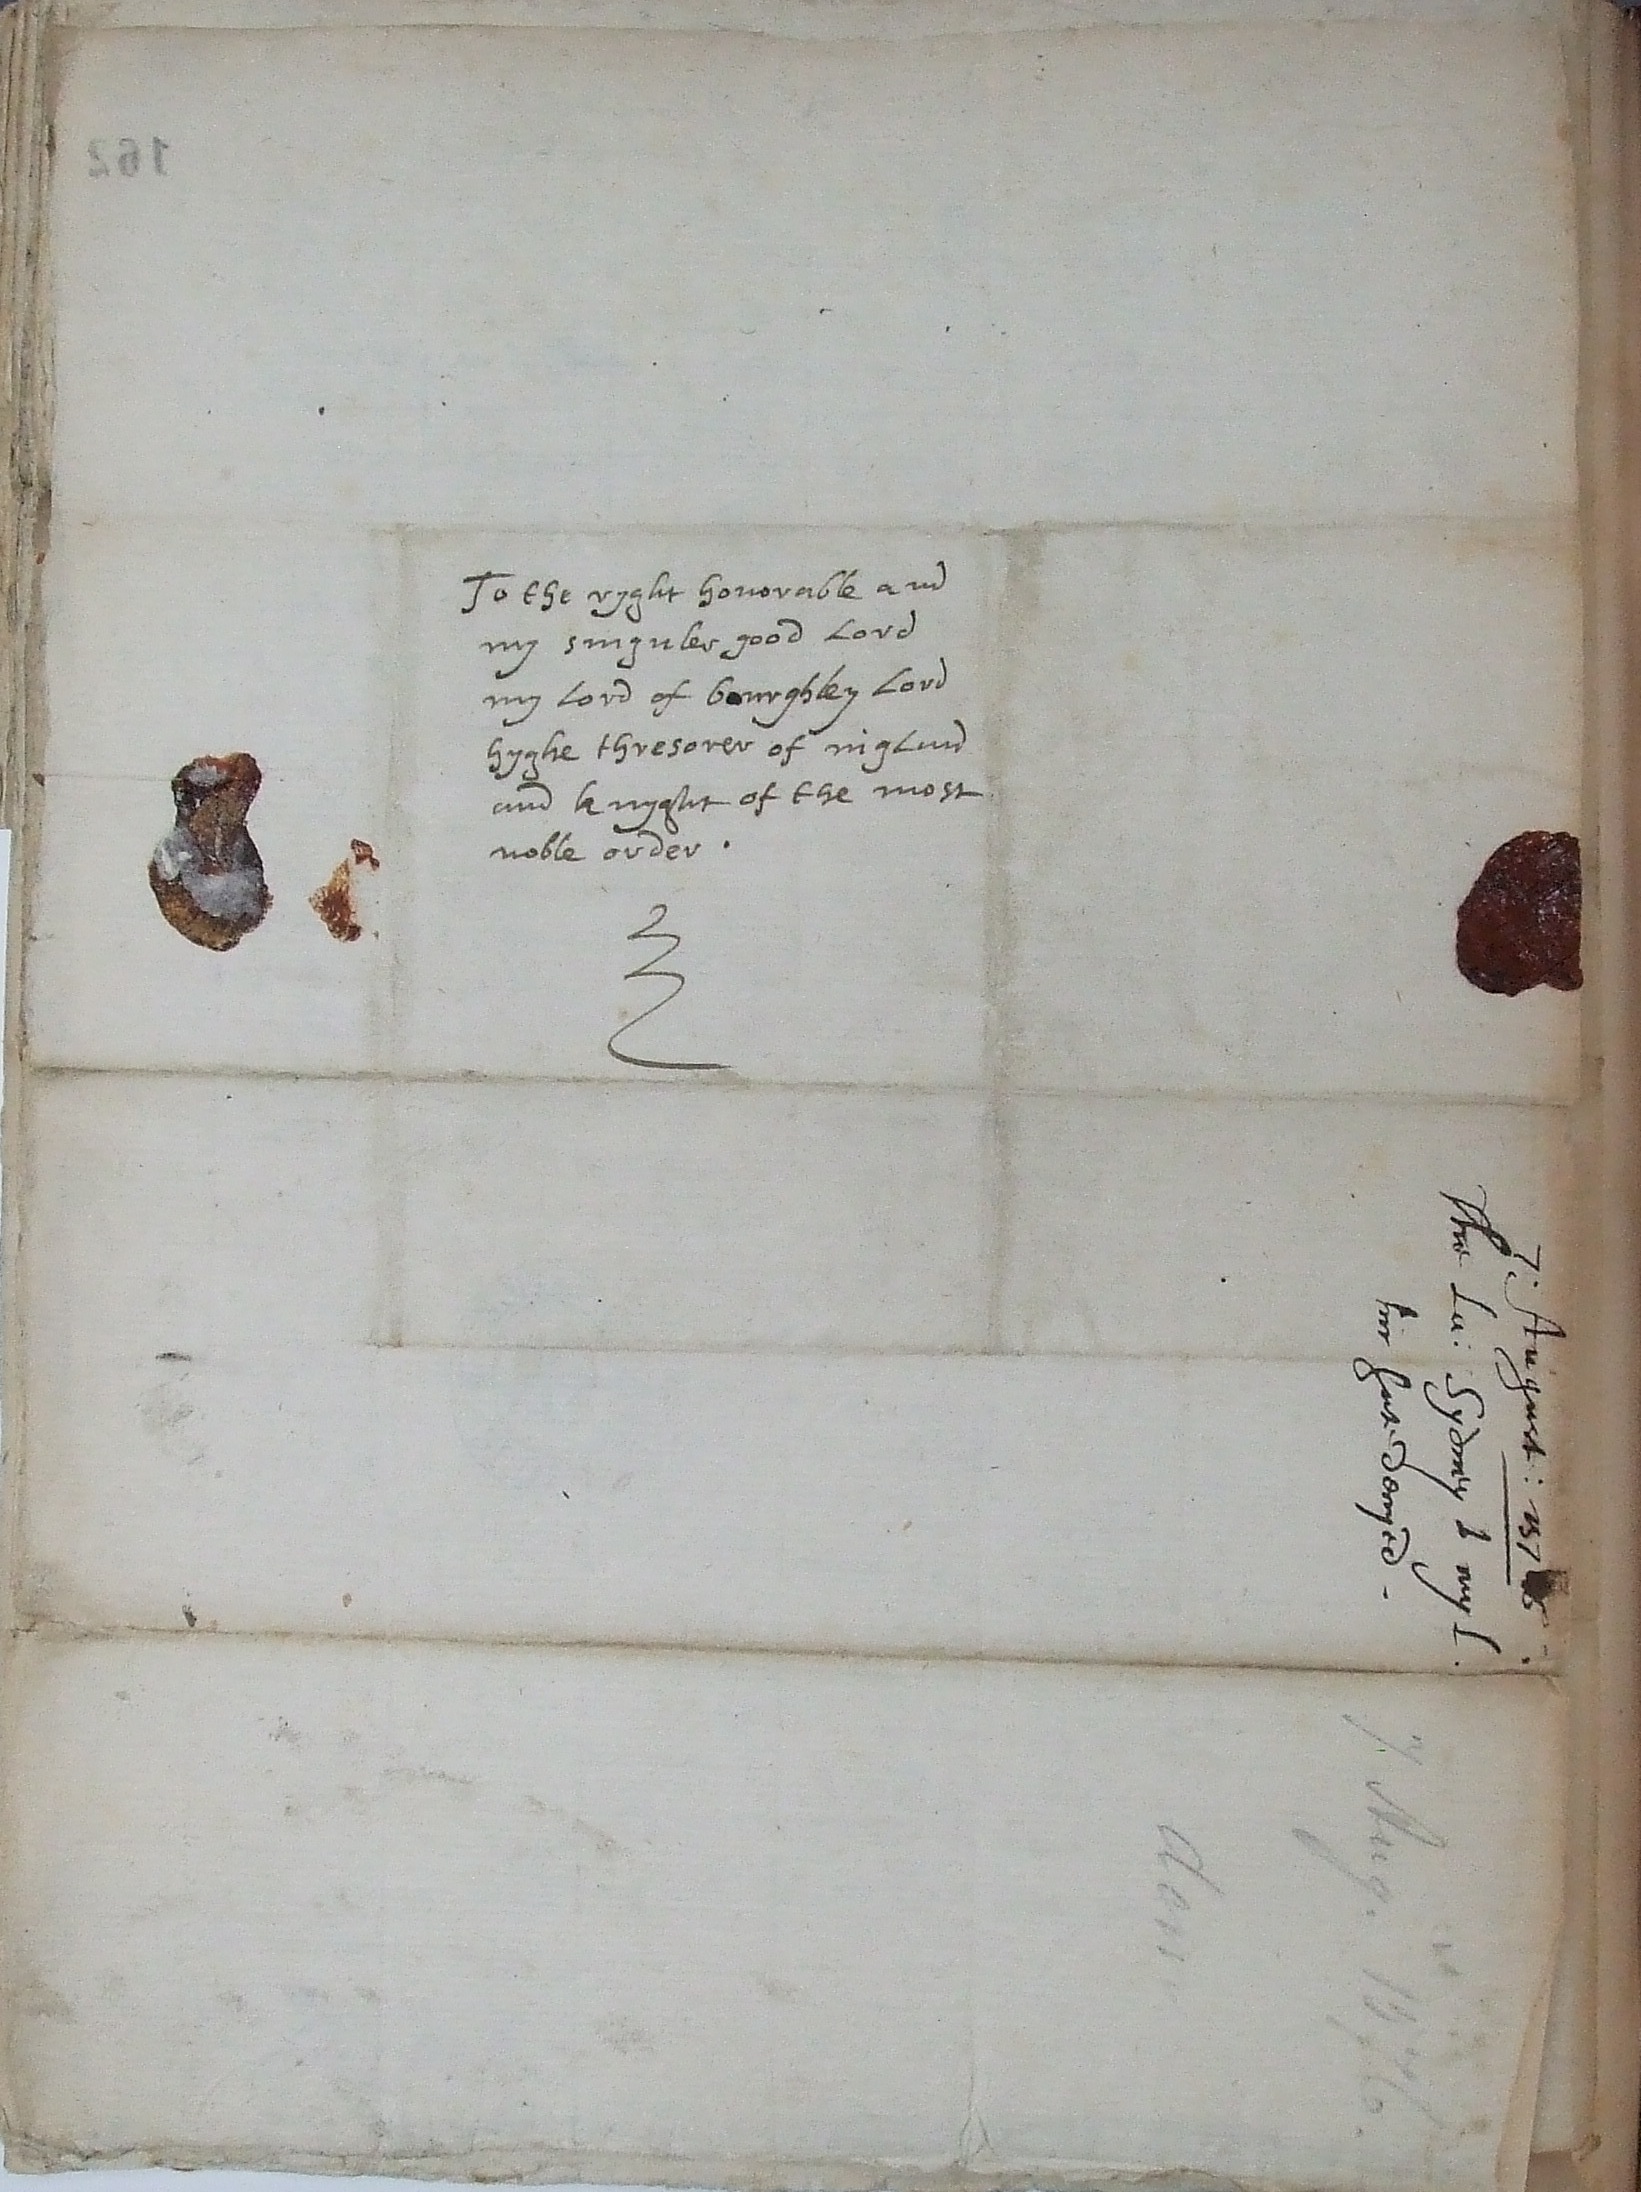 To the ryght honorable and
my singuler good Lord
my Lord of bourghley Lord
hyghe thresorer of ingland
and knyght of the most
noble order .
7: August: 157
The La: Sydney to my L.
7 Aug. 1576.
Dom
162